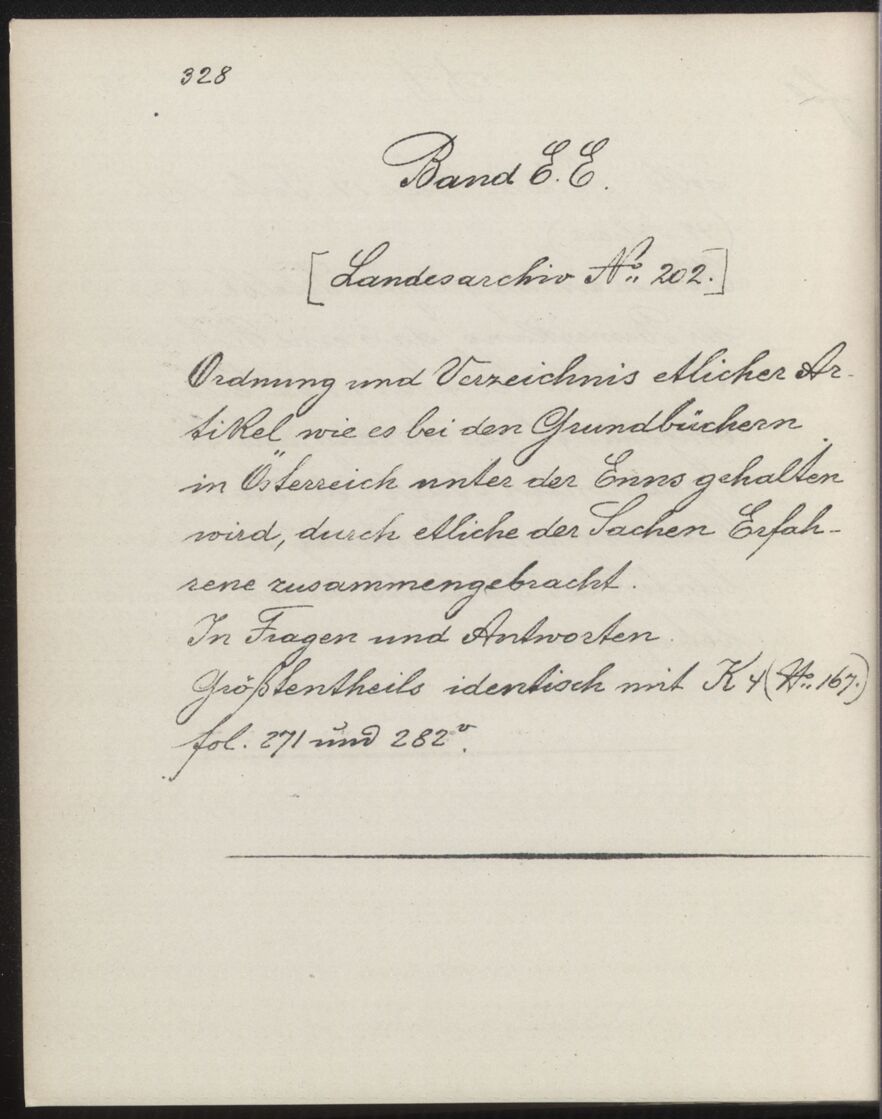 328
Band E. E.
[Landesarchiv No. 202.]
Ordnung und Verzeichnis etlicher Ar-
tikel wie es bei den Grundbüchern
in Österreich unter der Enns gehalten
wird, durch etliche der Sachen Erfah-
rene zusammengebracht.
In Fragen und Antworten.
Größtentheils identisch mit K 4 (No. 167.)
fol. 271 und 282v.